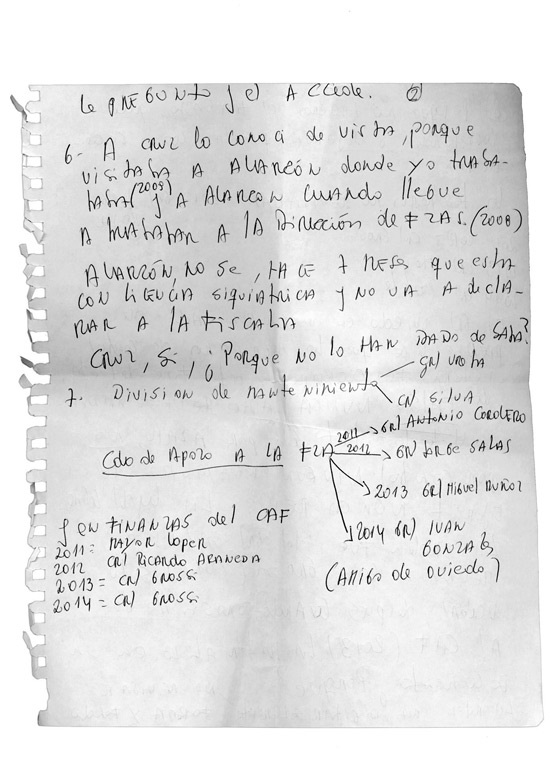 le pregunto y el accede. ②
6- A Cruz lo conocí de vista, porque
visitaba a Alarcón donde yo traba-
jaba (2009) y a Alarcon cuando llegue
a trabajar a la Dirección de FZAS. (2008)
Alarcón, no se, hace 7 meses que esta
con licencia siquiatrica y no va a decla-
rar a la Fiscalia
Cruz, si, ¿Porque no lo han dado de baja?
7. Division de mantenimiento
GRl Urrutia
CRl Silva
Cdo de Apoyo a la FZA
2011 GRl Antonio Cordero
2012 GRl Jorge Salas
2013 GRl Miguel Muñoz
2014 GRl Ivan Gonzalez
(Amigo de Oviedo)
J en Finanzas del CAF
2011 = Mayor Lopez
2012 CRl Ricardo Araneda
2013 = CRl Grossi
2014 = CRl Grossi